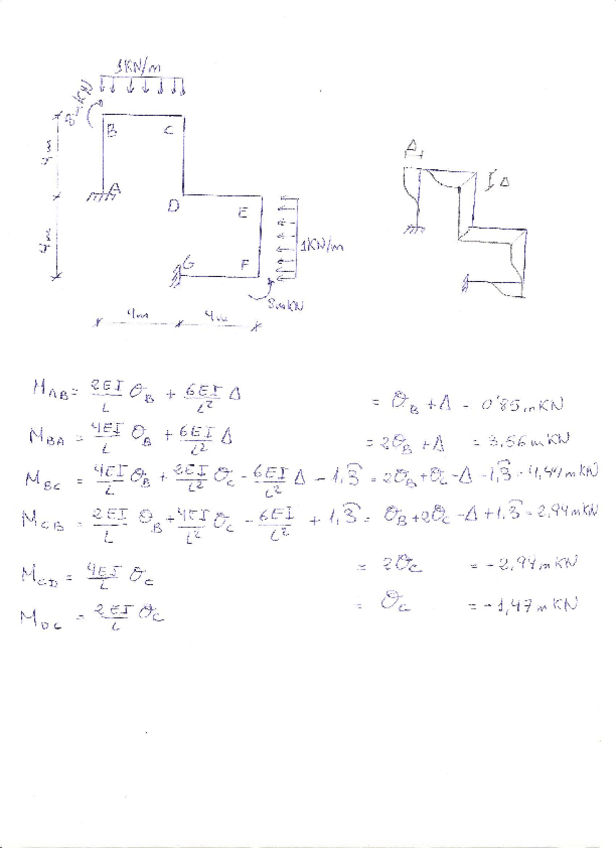 1KN/m
8mKN
B C
4m
A
D E
4m
1KN/m
G F
8mKN
4m 4m
Δ
Δ
M_AB = 2EI/L θ_B + 6EI/L² Δ = θ_B + Δ = 0'85 mKN
M_BA = 4EI/L θ_B + 6EI/L² Δ = 2θ_B + Δ = 3.56 mKN
M_BC = 4EI/L θ_B + 2EI/L θ_C - 6EI/L² Δ - 1,3̂ = 2θ_B + θ_C - Δ - 1,3̂ = 4,44 mKN
M_CB = 2EI/L θ_B + 4EI/L θ_C - 6EI/L² + 1,3̂ = θ_B + 2θ_C - Δ + 1,3̂ = 2,94 mKN
M_CD = 4EI/L θ_C = 2θ_C = -2,94 mKN
M_DC = 2EI/L θ_C = θ_C = -1,47 mKN